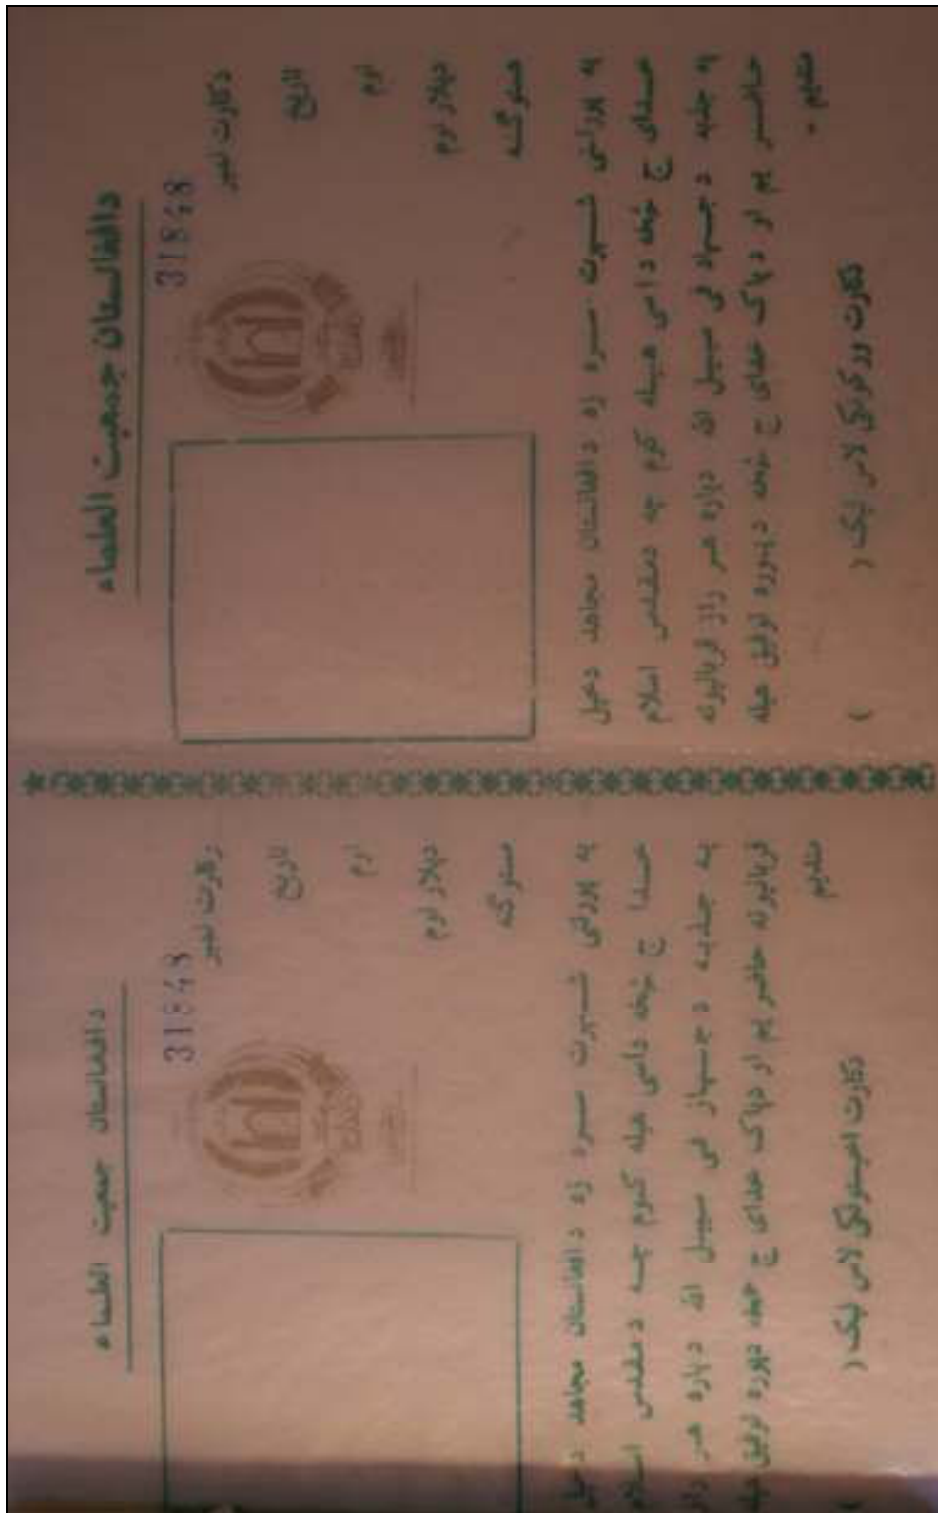 دافغانستان جمعیت العلماء
31848
دکارت نمبر
تاریخ
نوم
دپلار نوم
ستوگنه
په پورتنی شهرت سره زه دافغانستان مجاهد دخپل
خدای ج څخه داسی هیله کوم چه دمقدس اسلام
په جذبه دجهاد فی سبیل الله دپاره هر راز قربانیوته
حاضر یم او دپاک خدای ج څخه دپوره توفیق هیله
دکارت ورکونکی لاس لیک ( )
دافغانستان جمعیت العلماء
31848
دکارت نمبر
تاریخ
نوم
دپلار نوم
ستوگنه
په پورتنی شهرت سره زه دافغانستان مجاهد دخپل
خدا ج څخه داسی هیله کوم چه دمقدس اسلام
په جذبه دجهاز فی سبیل الله دپاره هر راز
قربانیوته حاضر یم او دپاک خدای ج څخه دپوره توفیق هیله
دکارت اخیستونکی لاس لیک ( )